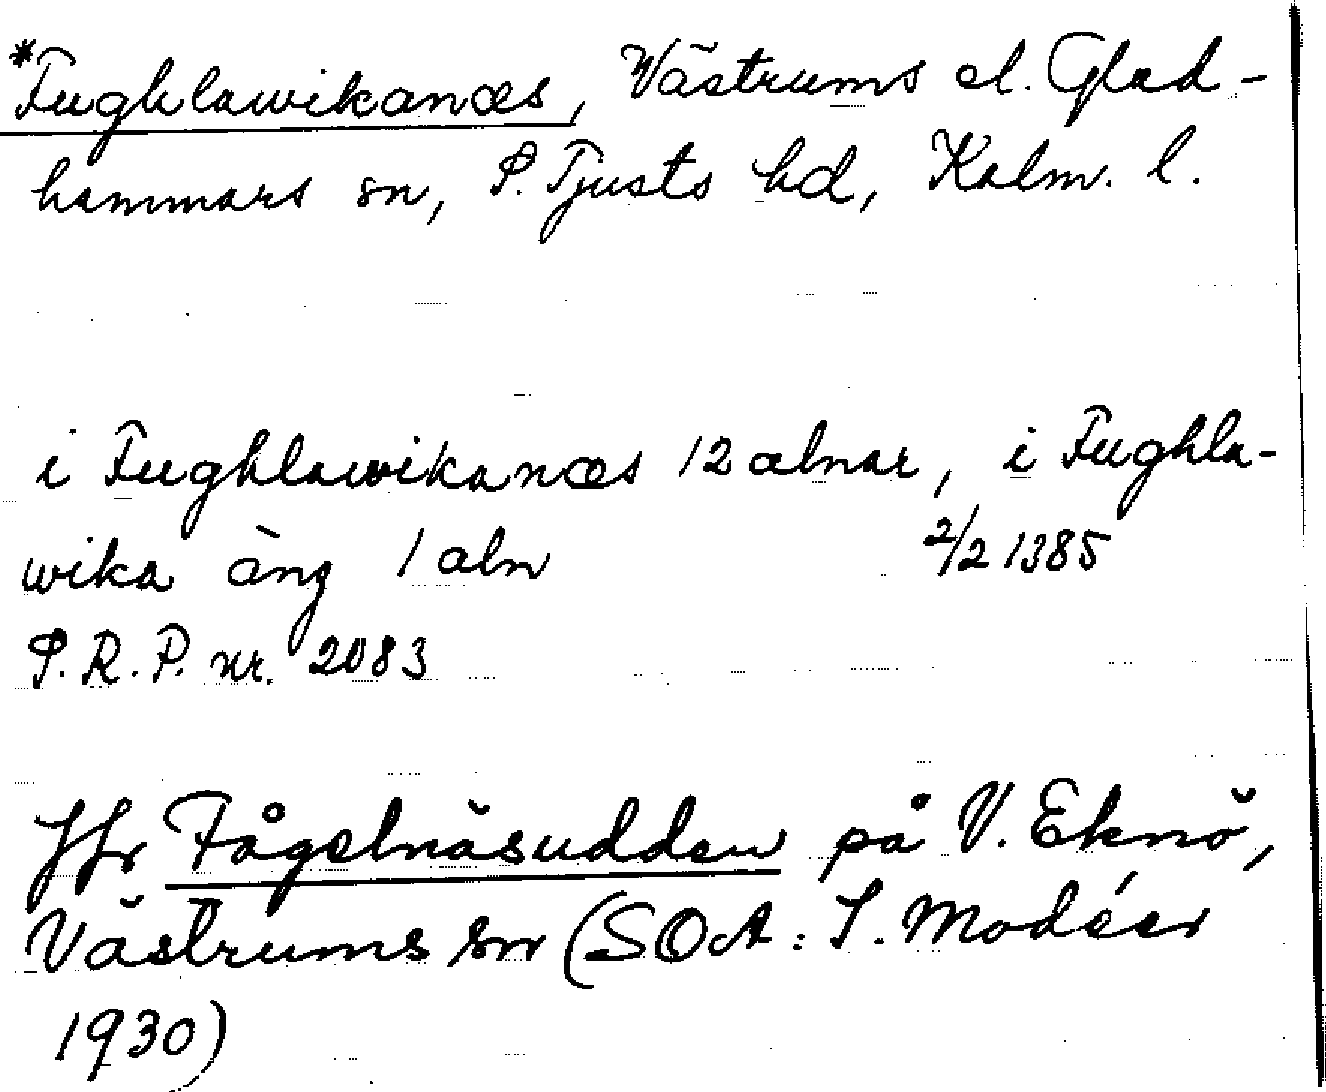 *Fughlawikanæs, Västrums el. Glad-
hammars sn, S. Tjusts hd, Kalm. l.
i Fughlawikanæs 12 alnar, i Fughla-
wika äng 1 aln 2/2 1385
S.R.P. nr. 2083
Jfr Fågelnäsudden på V. Eknö,
Västrums sn (SOA: I. Modéer
1930)